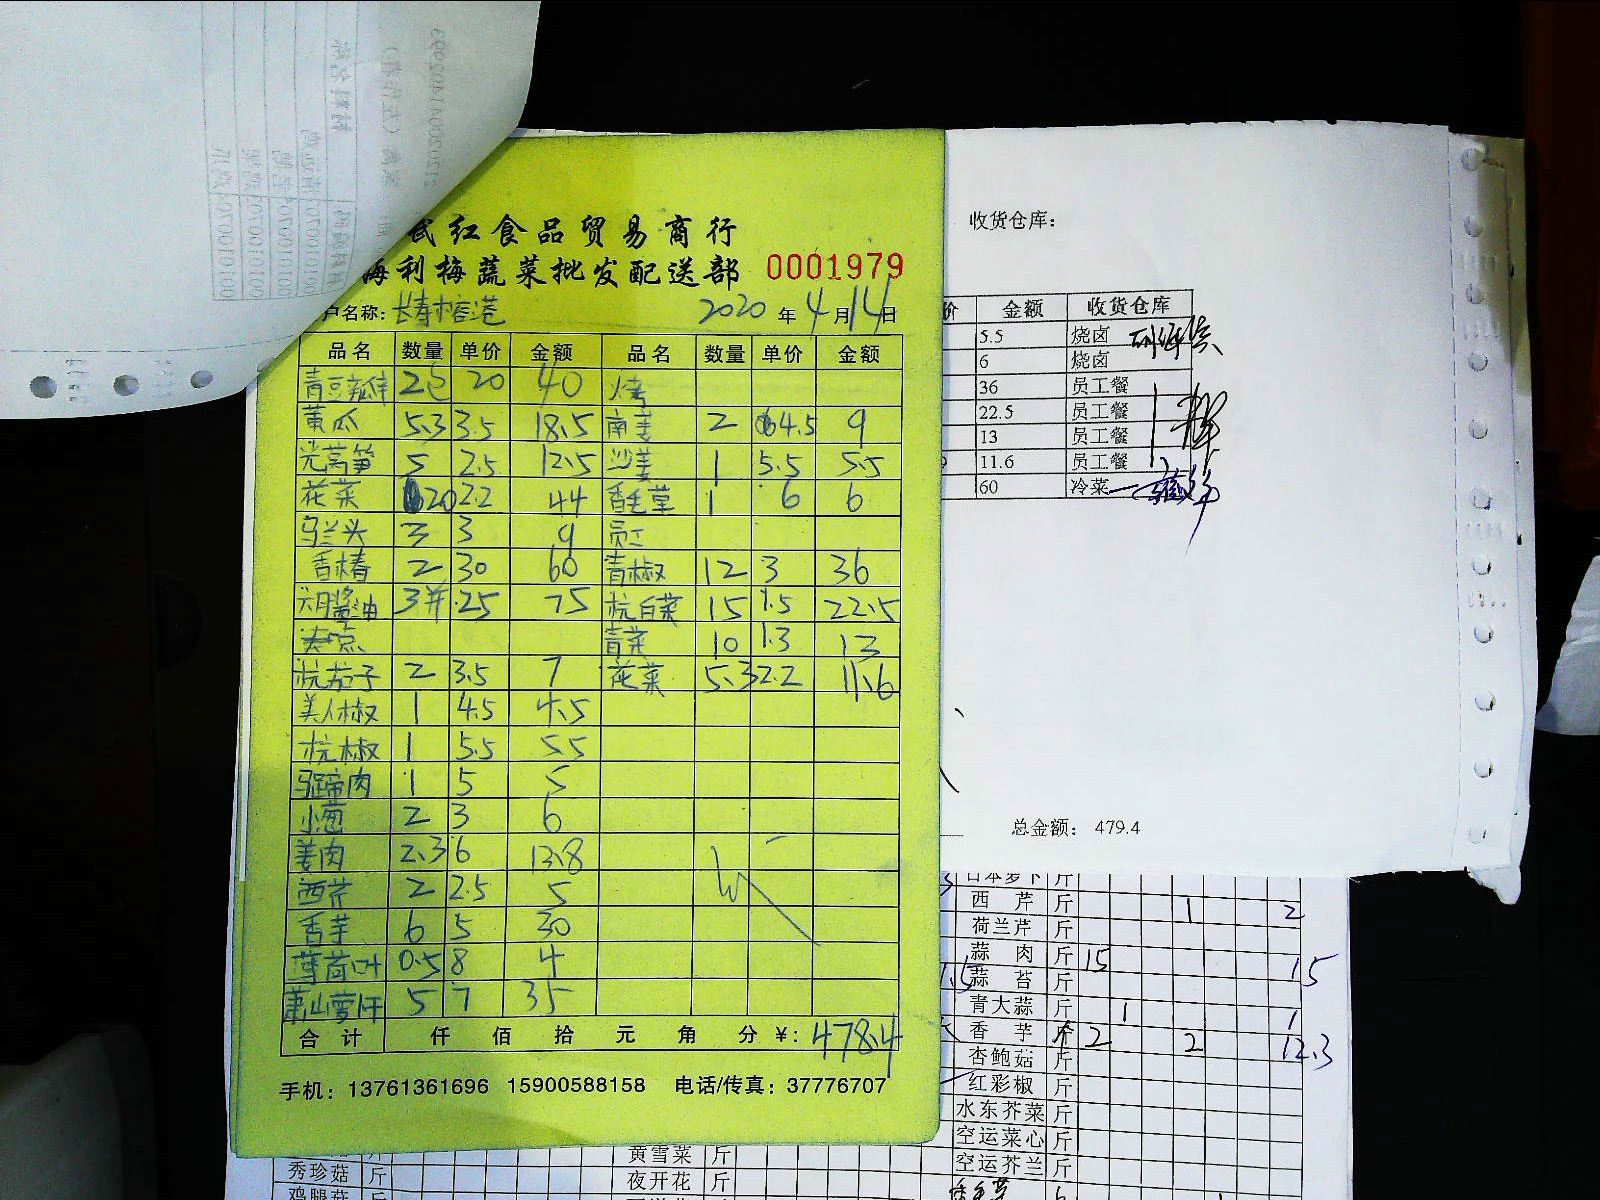 武红食品贸易商行
海利梅蔬菜批发配送部 0001979
户名称: 长春榕港 2020 年 4 月 14 日
品名 数量 单价 金额 品名 数量 单价 金额
青豆瓣 2包 20 40 烤
黄瓜 5.3 3.5 18.5 南姜 2 4.5 9
光莴笋 5 2.5 12.5 沙姜 1 5.5 5.5
花菜 20 2.2 44 香毛草 1 6 6
马兰头 3 3 9 员工
香椿 2 30 60 青椒 12 3 36
六月酱油 3 25 75 杭白菜 15 1.5 22.5
青菜 10 1.3 13
杭茄子 2 3.5 7 花菜 5.3 2.2 11.6
美人椒 1 4.5 4.5
杭椒 1 5.5 5.5
马蹄肉 1 5 5
小葱 2 3 6
姜肉 2.3 6 13.8
西芹 2 2.5 5
香芋 6 5 30
薄荷叶 0.5 8 4
萧山萝卜干 5 7 35
合计 仟 佰 拾 元 角 分 ¥: 478.4
手机: 13761361696 15900588158 电话/传真: 37776707
收货仓库:
价 金额 收货仓库
5.5 烧卤
6 烧卤
36 员工餐
22.5 员工餐
13 员工餐
11.6 员工餐
60 冷菜
总金额: 479.4
日本萝卜 斤
西芹 斤 1 2
荷兰芹 斤
蒜肉 斤 15 15
蒜苔 斤
青大蒜 斤 1 1
香芋 斤 2 2 12.3
杏鲍菇 斤
红彩椒 斤
水东芥菜 斤
空运菜心 斤
空运芥兰 斤
黄雪菜 斤
秀珍菇 斤 夜开花 斤
鸡腿菇 斤